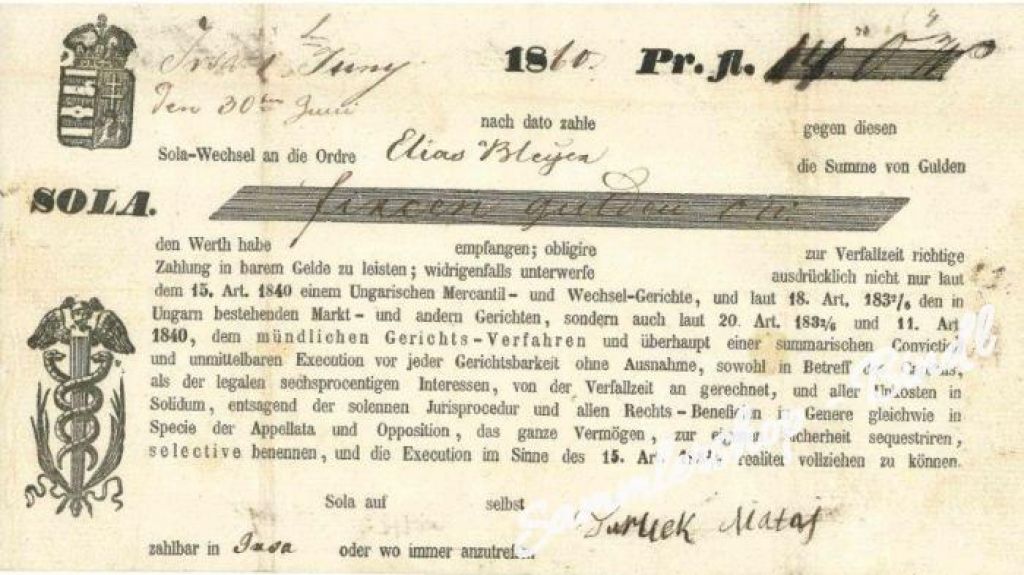 1860. Pr. fl. 14.
Den 30ten Juni
nach dato zahle gegen diesen
Sola-Wechsel an die Ordre Elias die Summe von Gulden
SOLA. gulden
den Werth habe empfangen; obligire zur Verfallzeit richtige
Zahlung in barem Gelde zu leisten; widrigenfalls unterwerfe ausdrücklich nicht nur laut
dem 15. Art. 1840 einem Ungarischen Mercantil- und Wechsel-Gerichte, und laut 18. Art. 183²/₆ den in
Ungarn bestehenden Markt- und andern Gerichten, sondern auch laut 20. Art. 183²/₆ und 11. Art
1840, dem mündlichen Gerichts-Verfahren und überhaupt einer summarischen Convictio
und unmittelbaren Execution vor jeder Gerichtsbarkeit ohne Ausnahme, sowohl in Betreff
als der legalen sechsprocentigen Interessen, von der Verfallzeit an gerechnet, und aller Unkosten in
Solidum, entsagend der solennen Jurisprocedur und allen Rechts-Beneficien in Genere gleichwie in
Specie der Appellata und Opposition, das ganze Vermögen, zur Sicherheit sequestriren,
selective benennen, und die Execution im Sinne des 15. Art. realiter vollziehen zu können.
Sola auf selbst
zahlbar in oder wo immer anzutreffen